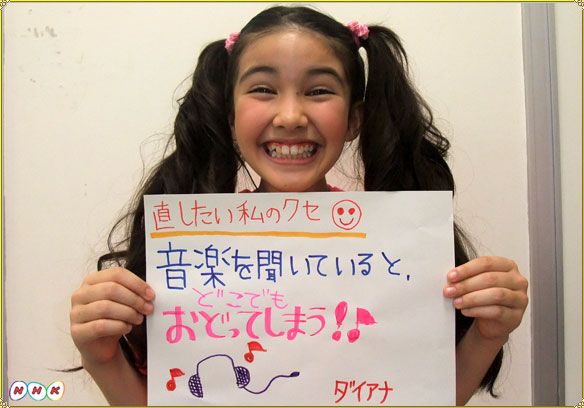 直したい私のクセ
音楽を聞いていると、
どこでも
おどってしまう!!♪
ダイアナ
NHK